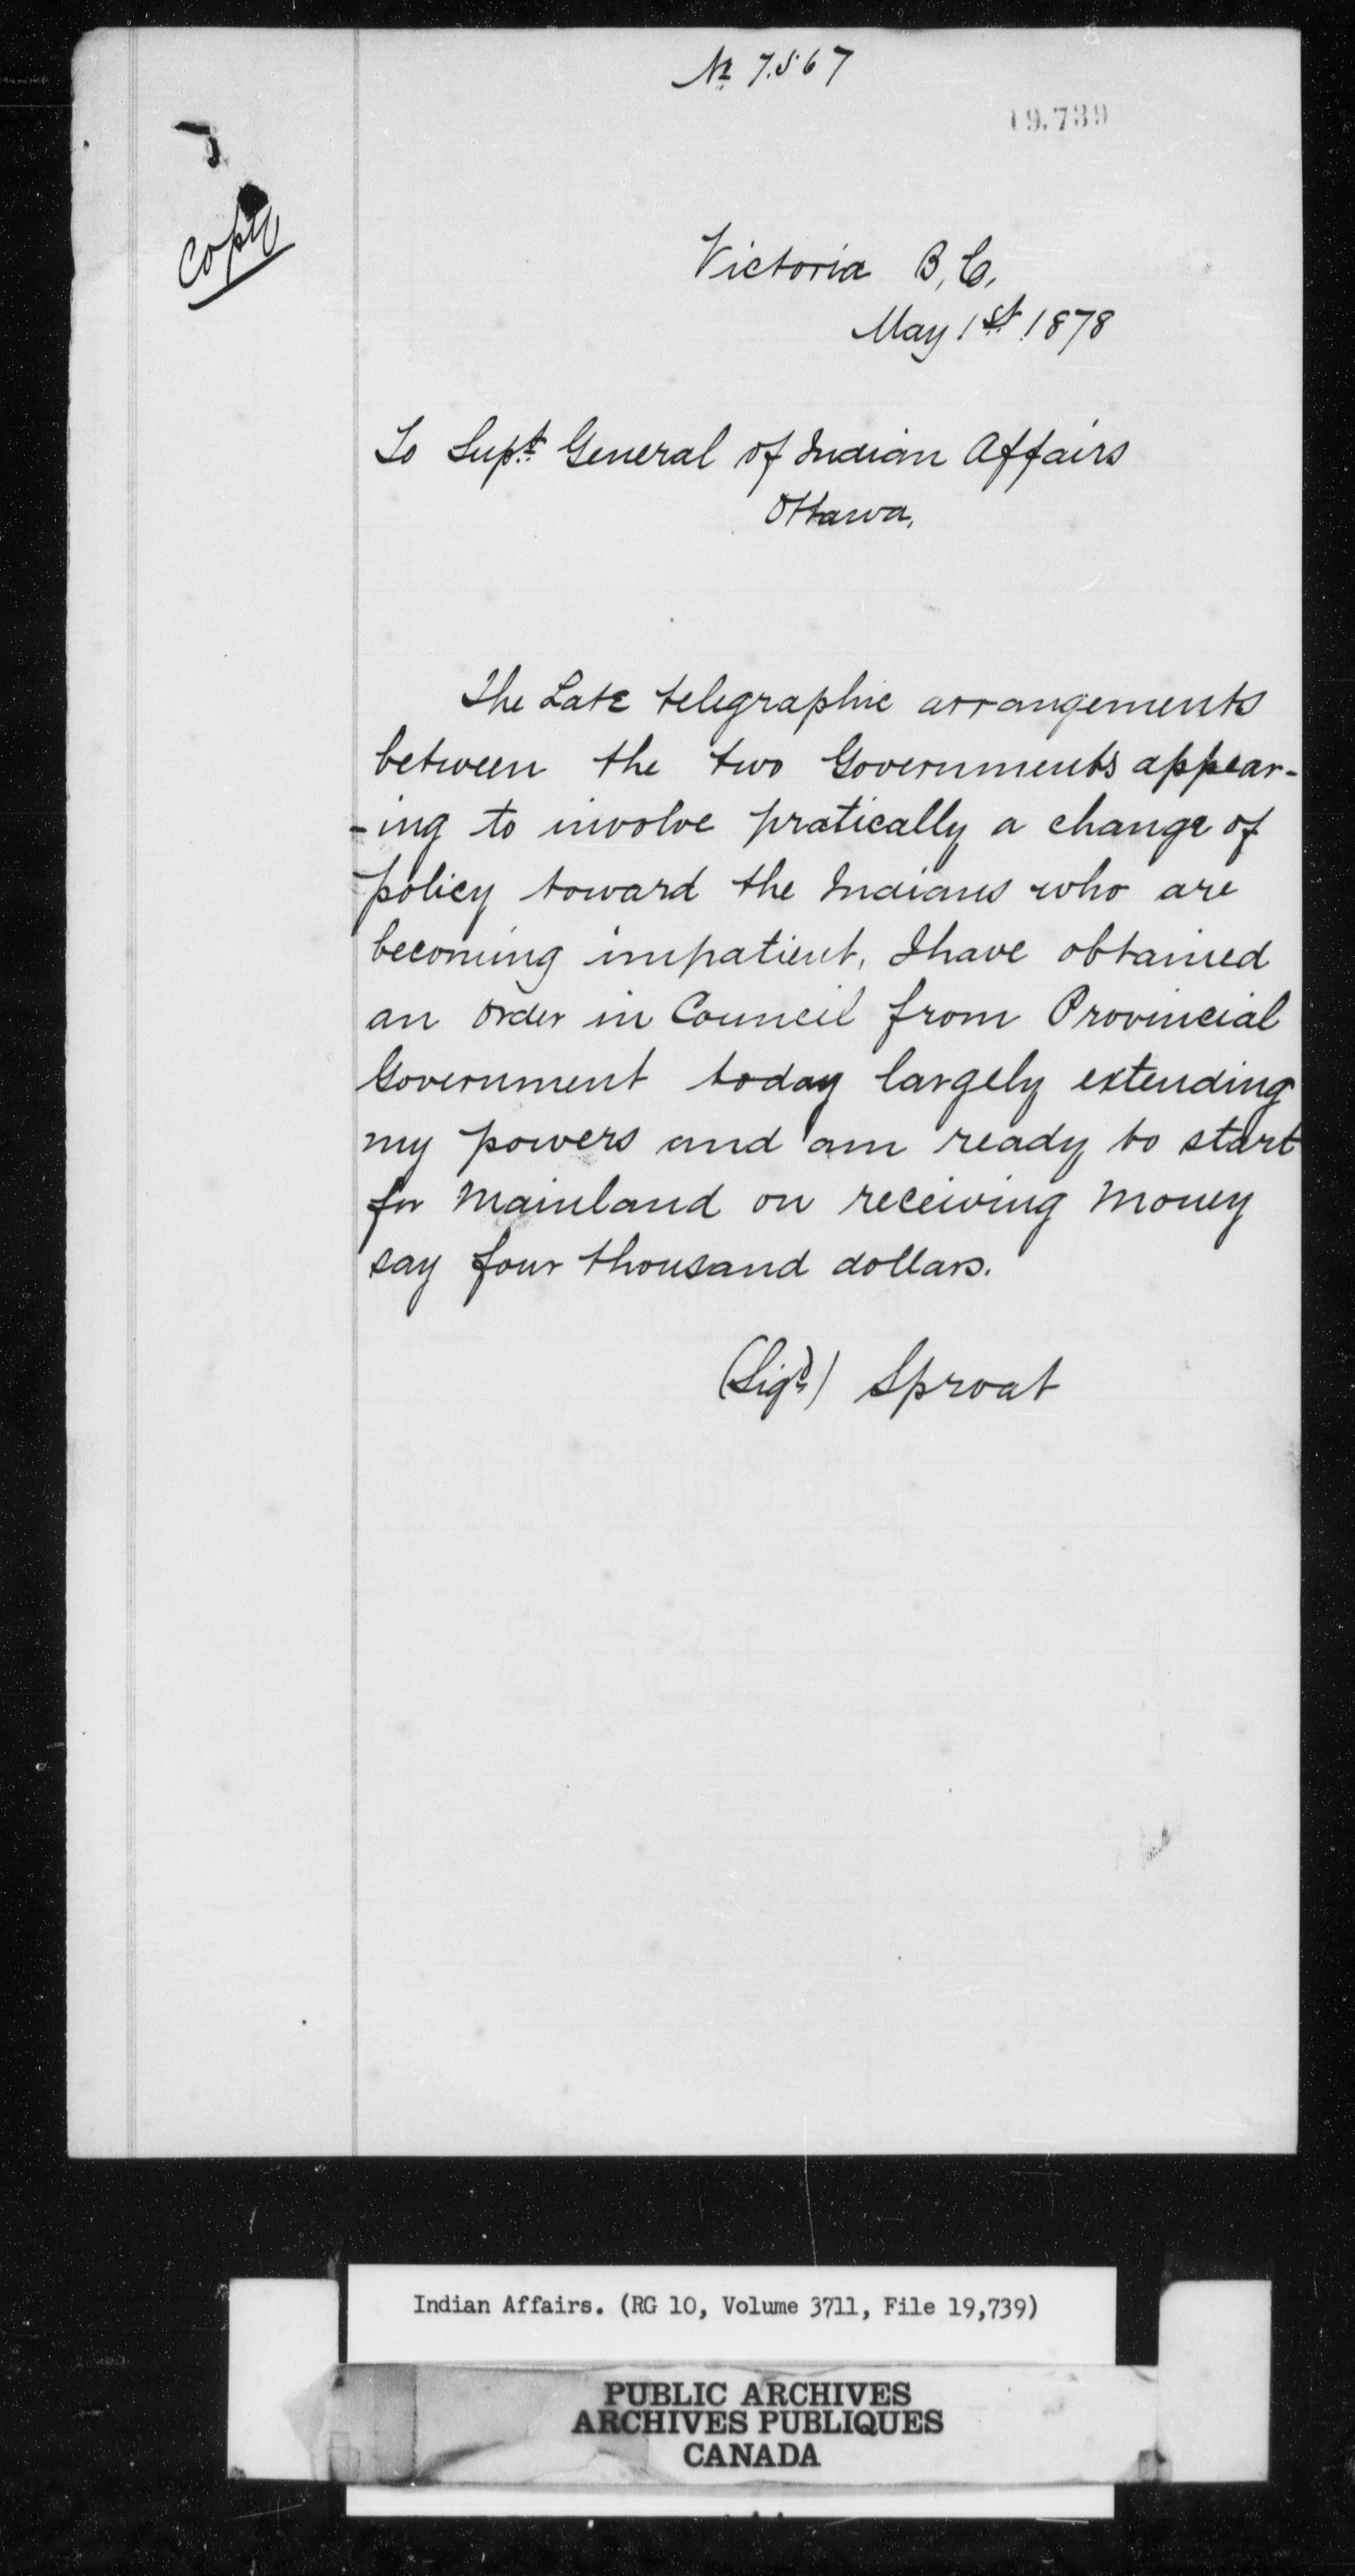 No 7567
19,739
Copy
Victoria B, C,
May 1st 1878
To Supt General of Indian Affairs
Ottawa,
The Late telegraphic arrangements
between the two Governments appear-
-ing to involve pratically a change of
policy toward the Indians who are
becoming impatient, I have obtained
an order in Council from Provincial
Government today largely extending
my powers and am ready to start
for Mainland on receiving money
say four thousand dollars.
(Sigd) Sproat
Indian Affairs. (RG 10, Volume 3711, File 19,739)
PUBLIC ARCHIVES
ARCHIVES PUBLIQUES
CANADA